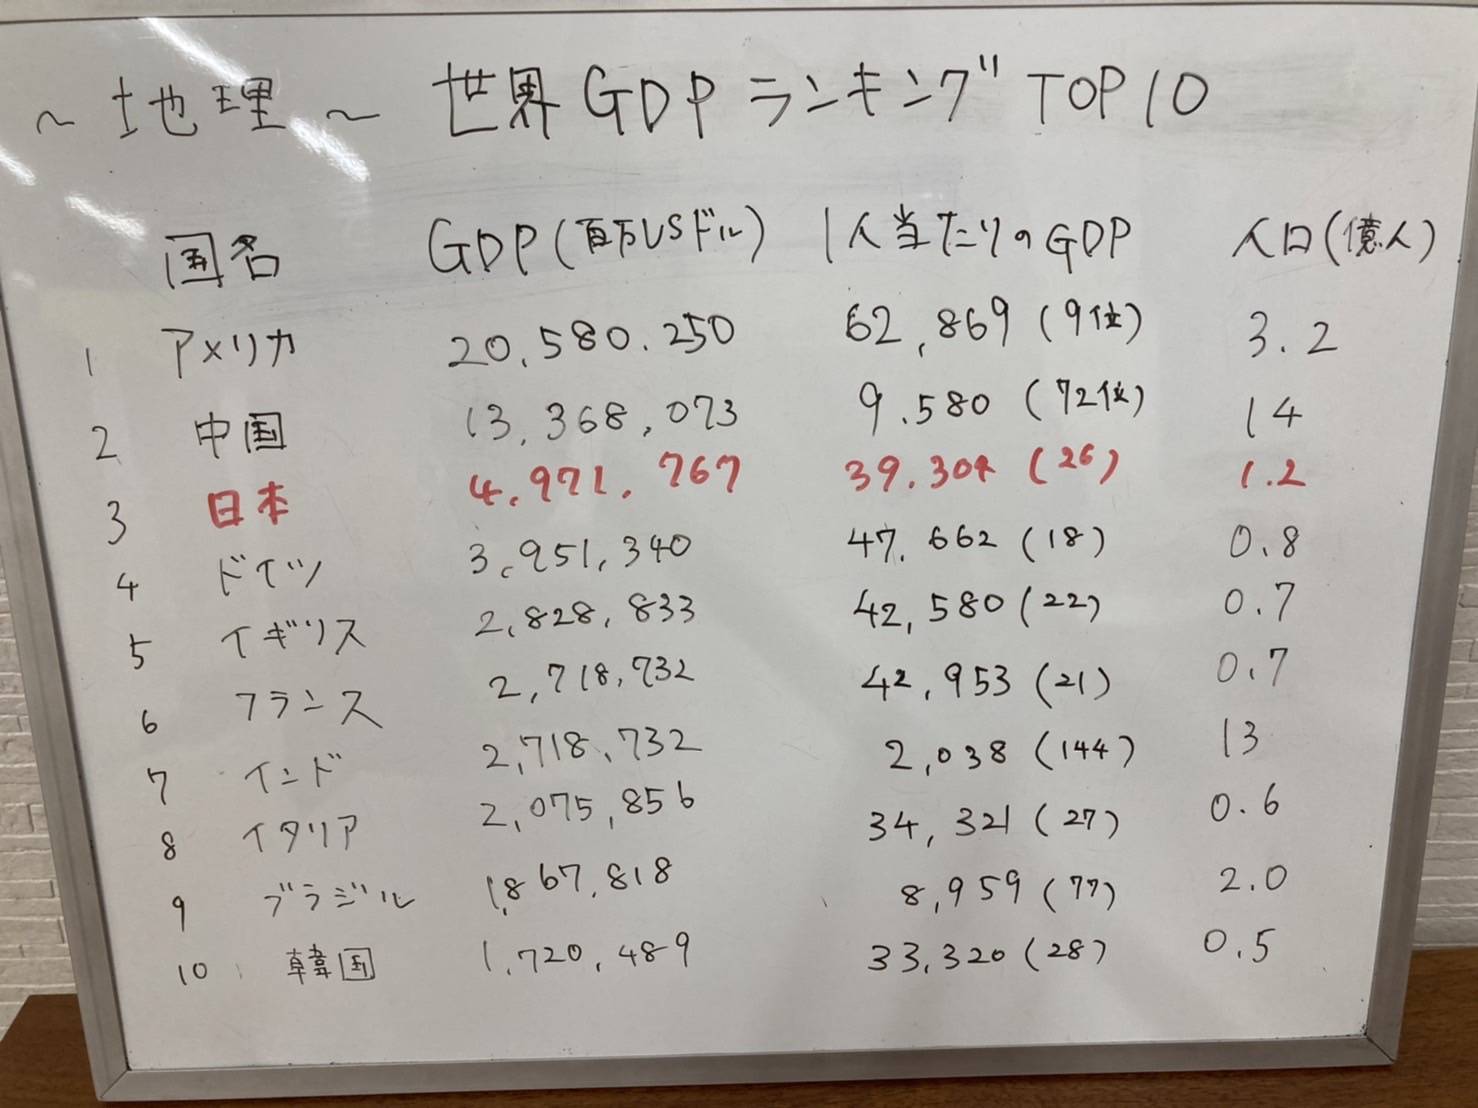 ～地理～ 世界GDPランキング TOP10
国名 GDP(百万USドル) 1人当たりのGDP 人口(億人)
1 アメリカ 20,580.250 62,869(9位) 3.2
2 中国 13,368,073 9.580(72位) 14
3 日本 4,971.767 39.304(26) 1.2
4 ドイツ 3,951,340 47.662(18) 0.8
5 イギリス 2,828,833 42,580(22) 0.7
6 フランス 2,718,732 42,953(21) 0.7
7 インド 2,718,732 2,038(144) 13
8 イタリア 2,075,856 34,321(27) 0.6
9 ブラジル 1,867,818 8,959(77) 2.0
10 韓国 1,720,489 33,320(28) 0.5